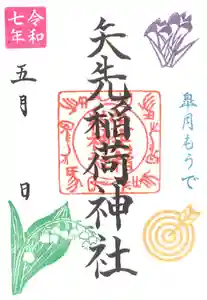 令和
七年
五月　日
矢先稲荷神社
皐月もうで